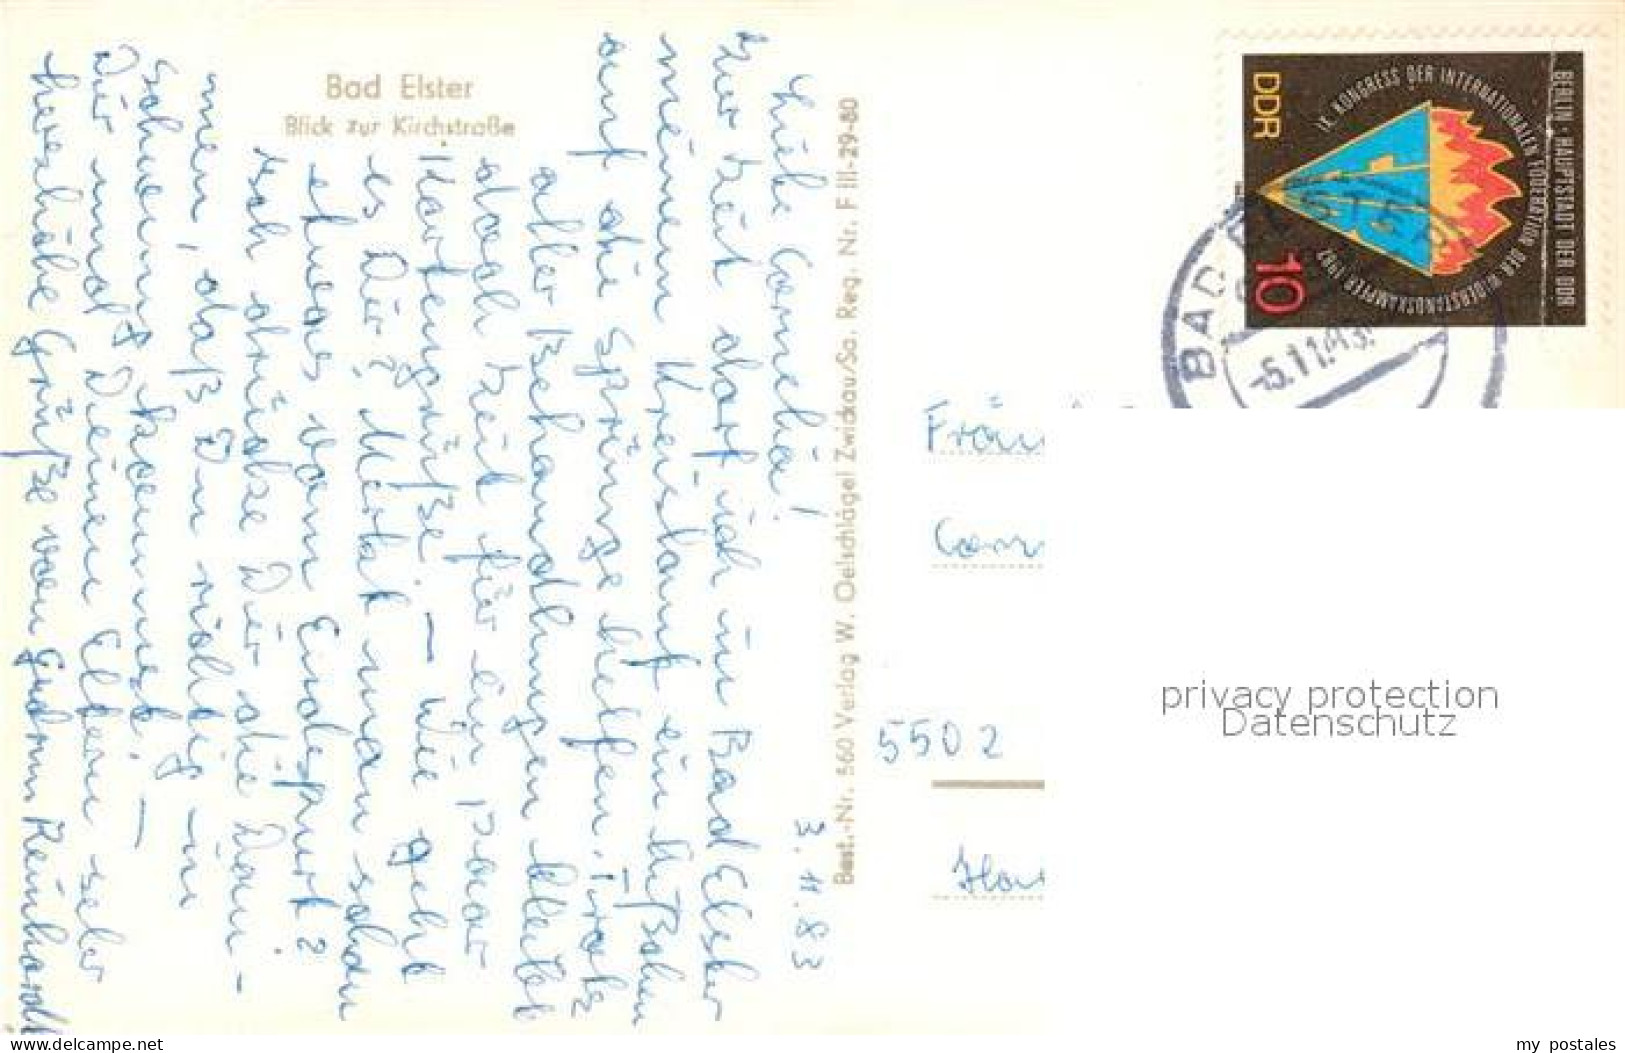 Bad Elster
Blick zur Kirchstraße
3.11.83
Liebe Cornelia!
Zur Zeit darf ich in Bad Elster
meinem Kreislauf ein bißchen
auf die Sprünge helfen. Trotz
aller Behandlungen bleibt
doch Zeit für ein paar
Kartengrüße. – Wie geht
es Dir? Merkt man schon
etwas vom Endspurt?
Ich drücke Dir die Dau-
men, daß Du richtig in
Schwung kommst. –
Dir und Deinen Eltern sehr
herzliche Grüße von Gudrun Reinhardt
Best.-Nr. 560 Verlag W. Oelschlägel Zwickau/Sa. Reg. Nr. F III-29-80
DDR
10
IX. KONGRESS DER INTERNATIONALEN FÖDERATION DER WIDERSTANDSKÄMPFER 1982
BERLIN · HAUPTSTADT DER DDR
BAD ELSTER
-5.11.83
5502
privacy protection
Datenschutz
www.delcampe.net
my_postales